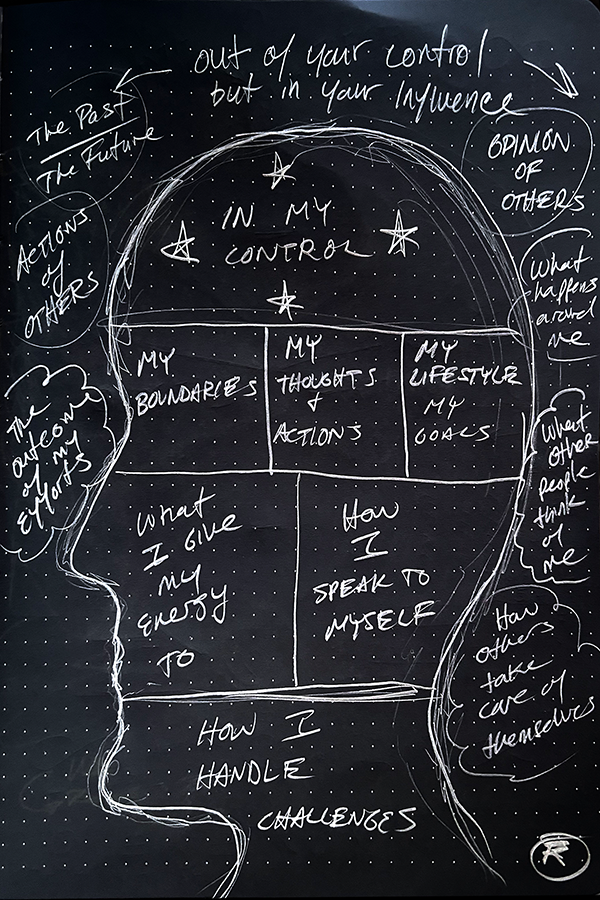 out of your control
but in your Influence
The Past
The Future
OPINION
OF
OTHERS
ACTIONS
of
OTHERS
What
happens
around
me
IN MY
CONTROL
MY
BOUNDARIES
MY
THOUGHTS
+
ACTIONS
MY
LIFESTYLE
MY
GOALS
The
outcome
of my
efforts
What
other
people
think
of
me
What
I Give
My
Energy
TO
How
I
SPEAK TO
MYSELF
How
others
take
care of
themselves
HOW I
HANDLE
CHALLENGES